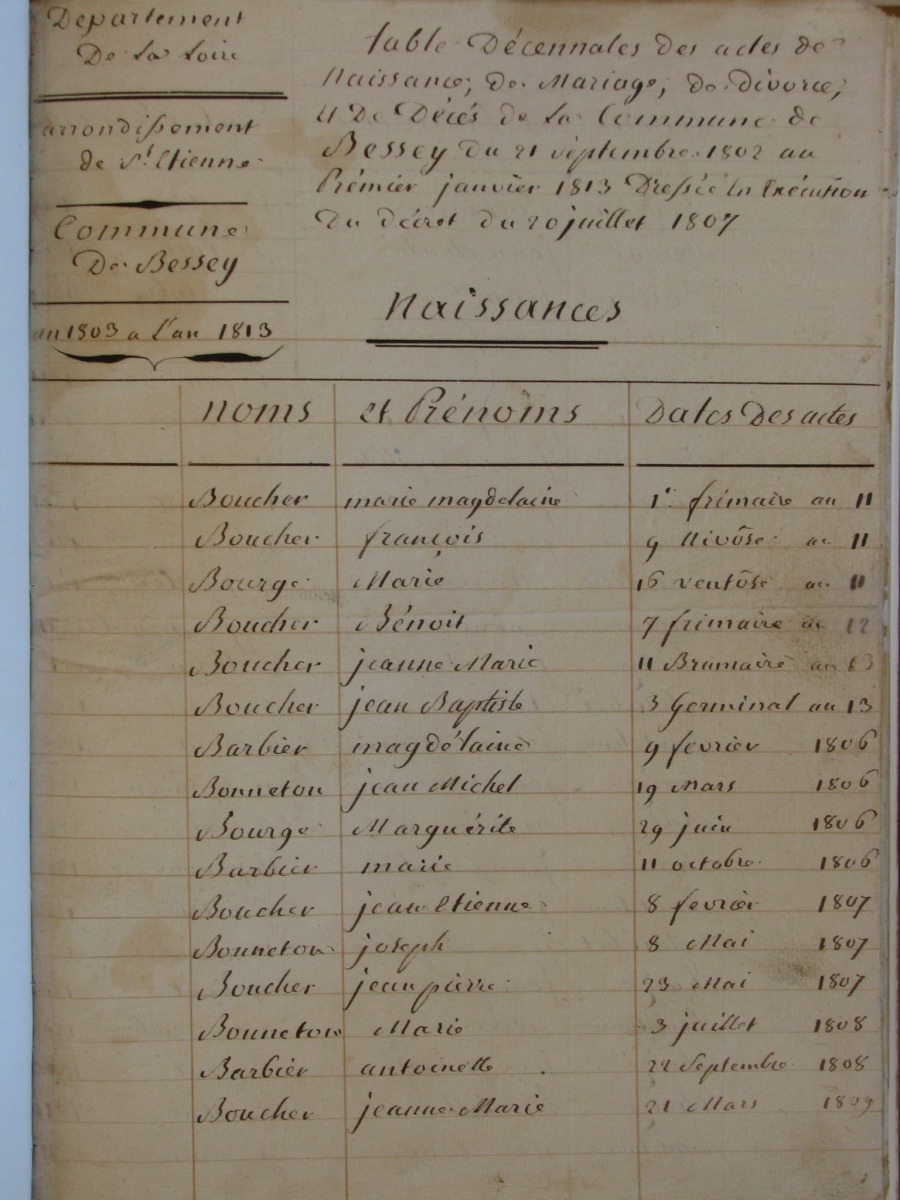 Département
De La Loire
arrondissement
de St Etienne
Commune
De Bessey
an 1803 a L'an 1813
table Décennales des actes de
Naissance, de Mariage, de divorce,
et De Décés de la Commune de
Bessey du 21 septembre 1802 au
Prémier janvier 1813 Dressée En Exécution
Du décret du 20 juillet 1807
Naissances
noms et Prénoms Dates Des actes
Boucher marie magdelaine 1er frimaire an 11
Boucher françois 9 Nivôse an 11
Bourge Marie 16 ventôse an 11
Boucher Bénoit 7 frimaire an 12
Boucher jeanne Marie 11 Brumaire an 13
Boucher jean Baptiste 3 Germinal an 13
Barbier magdélaine 9 fevrier 1806
Bonneton jean Michel 19 Mars 1806
Bourge Marguérite 29 juin 1806
Barbier marie 11 octobre 1806
Boucher jean Etienne 8 fevrier 1807
Bonneton joseph 8 Mai 1807
Boucher jean pierre 23 Mai 1807
Bonneton Marie 3 juillet 1808
Barbier antoinette 22 Septembre 1808
Boucher jeanne Marie 21 Mars 1809